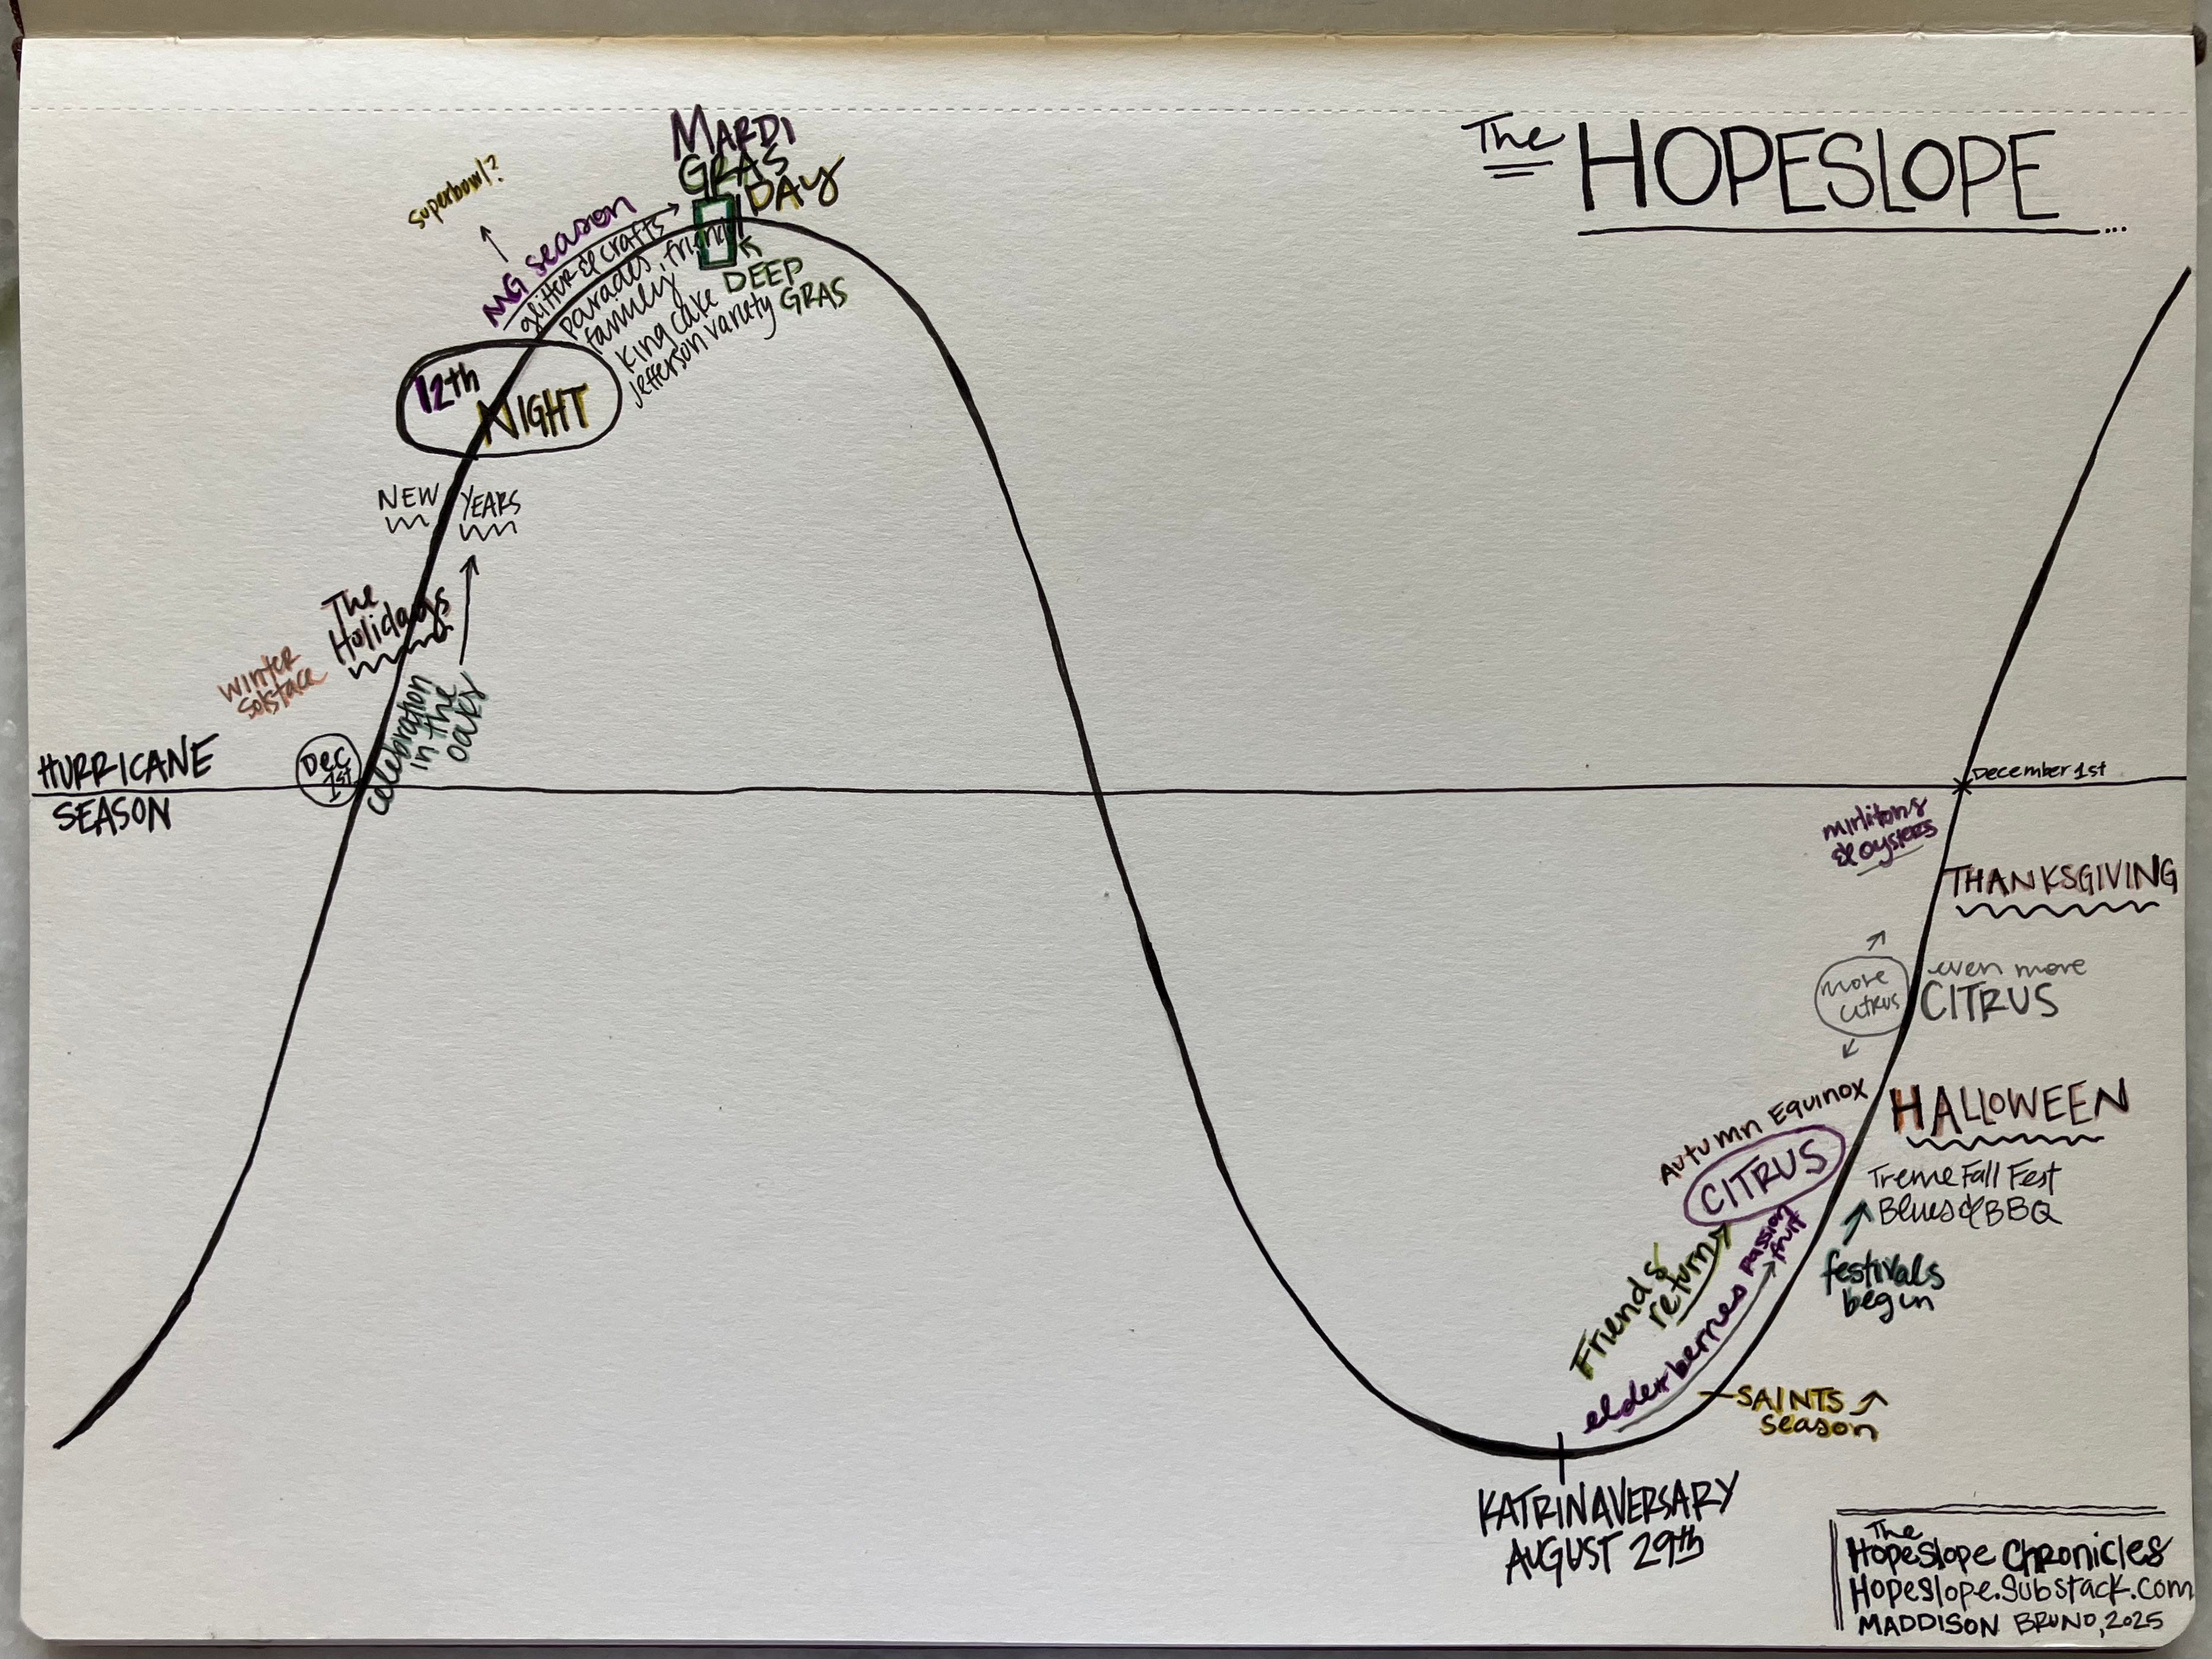 The HOPESLOPE...
superbowl?
MARDI
GRAS
DAY
MG season
glitter & crafts
parades, friends
family
king cake
Jefferson variety
DEEP
GRAS
12th
NIGHT
NEW YEARS
The
Holidays
winter
solstace
celebration
in the
oaks
HURRICANE
SEASON
Dec
1st
December 1st
mirlitons
& oysters
THANKSGIVING
more
citrus
even more
CITRUS
Autumn Equinox
HALLOWEEN
CITRUS
Treme Fall Fest
Blues & BBQ
passion
fruit
Friends
return
elderberries
festivals
begin
SAINTS
season
KATRINAVERSARY
AUGUST 29th
The
Hopeslope Chronicles
Hopeslope.Substack.com
MADDISON BRUNO, 2025